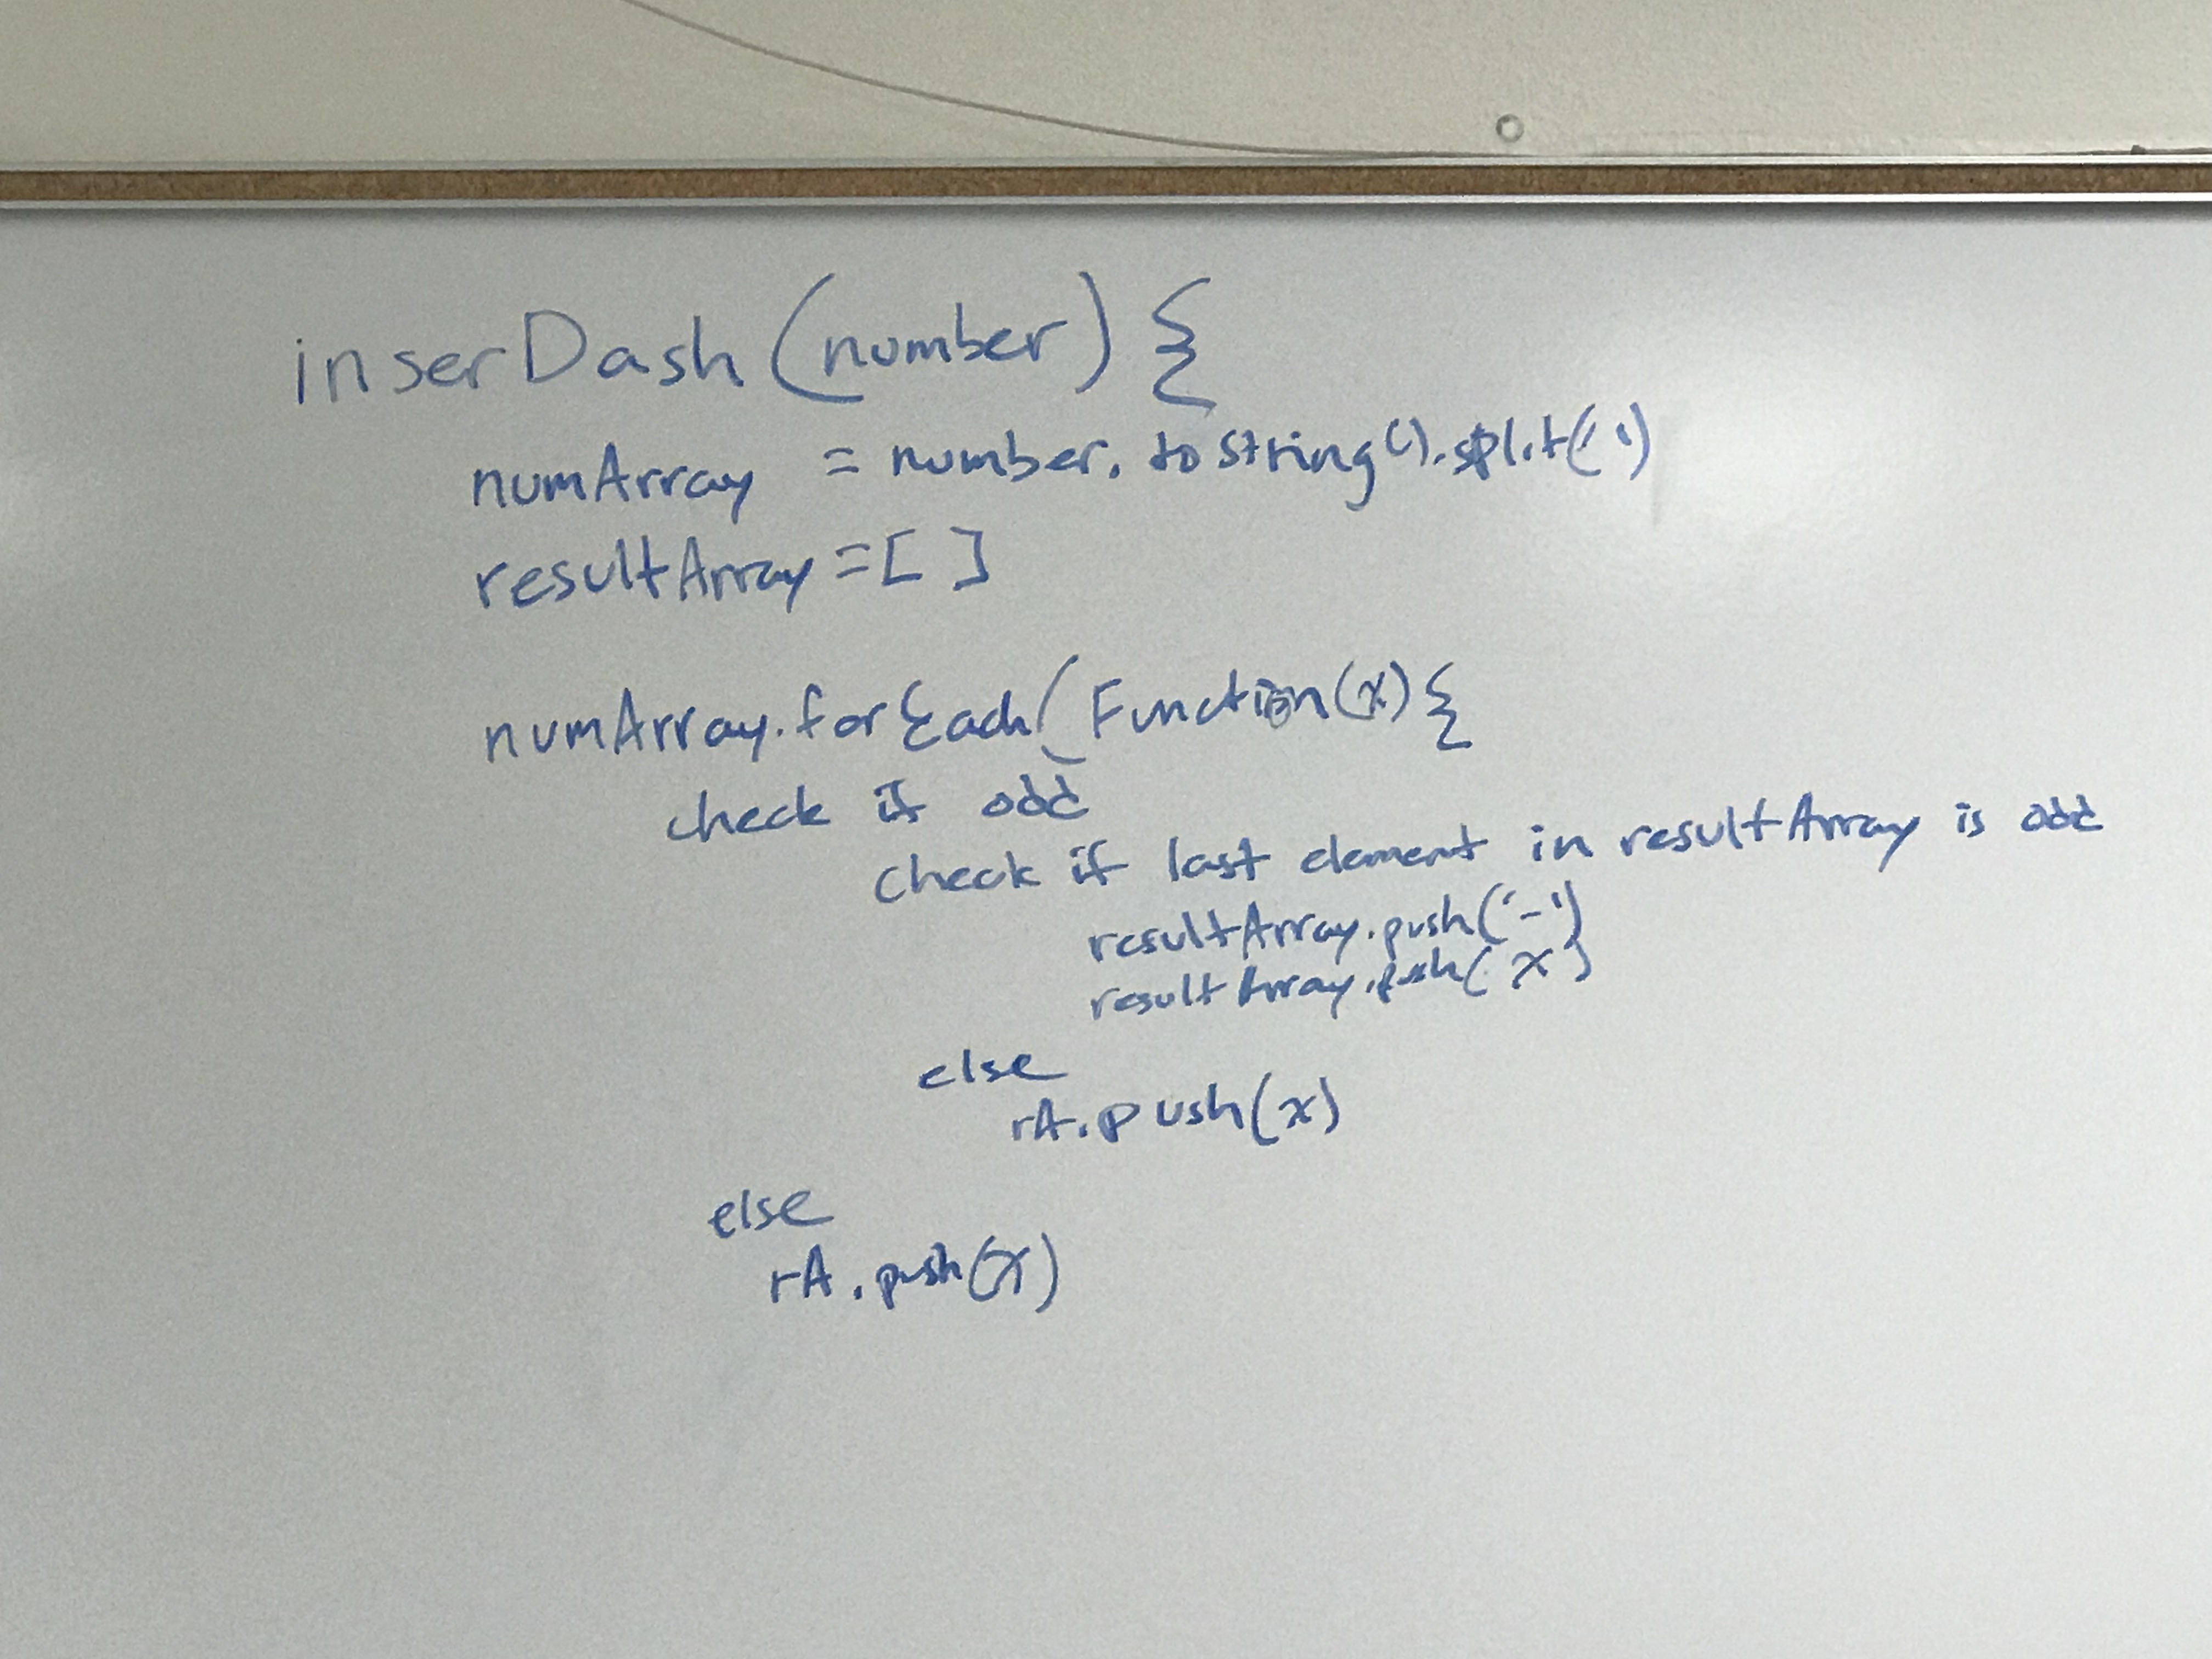 inserDash (number) {
numArray = number. to string().split('')
resultArray = [ ]
numArray.forEach(Function(x) {
check if odd
check if last element in resultArray is odd
resultArray.push('-')
resultArray.push(x)
else
rA.push(x)
else
rA.push(x)